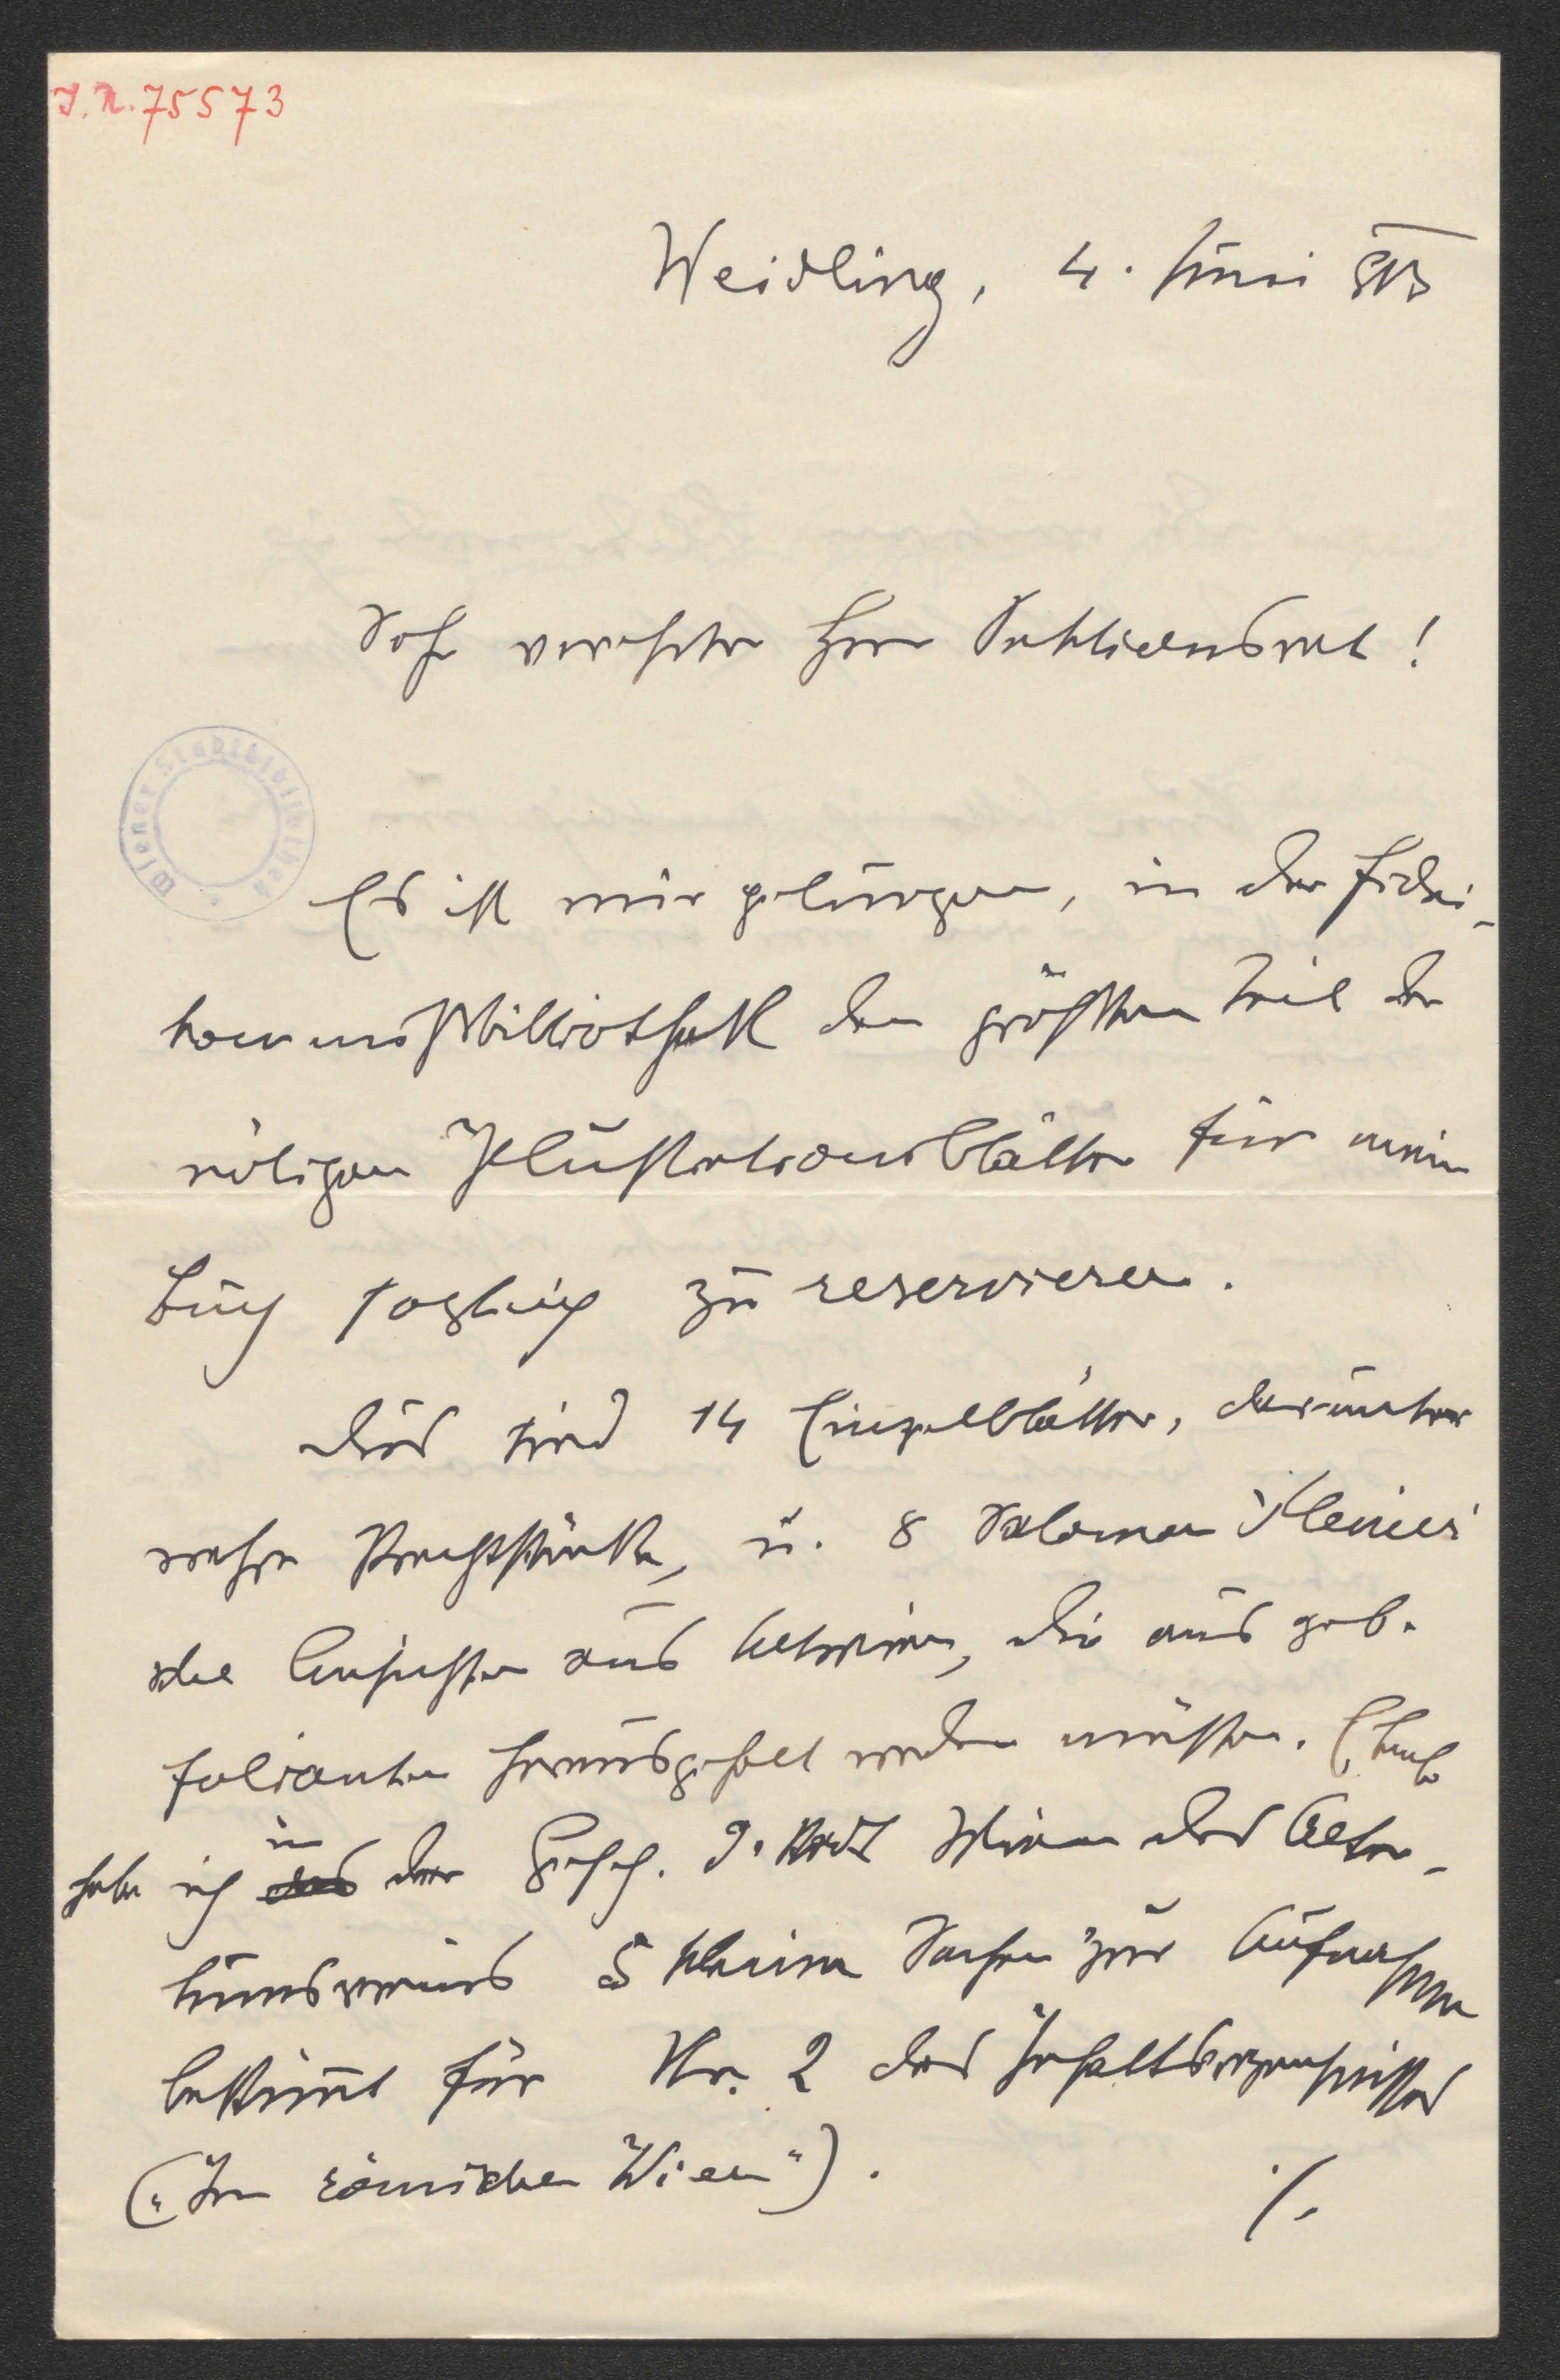 J. N. 75573
Weidling, 4. Juni 913
Sehr verehrter Herr Sektionsrat!
Wiener Stadtbibliothek
Es ist mir gelungen, in der Fidei-
kommißbibliothek den größten Teil der
nötigen Illustrationsblätter für mein
Buch sogleich zu reservieren.
Dies sind 14 Einzelblätter, darunter
wahre Prachtstücke, u. 8 Salomon Kleiner
sche Ansichten aus Altwien, die aus geb.
Folianten herausgeholt werden müssten. Ebenso
habe ich in der Gesch. d. Stadt Wien des Alter-
tumsvereins 5 kleine Sachen zur Aufnahme
bestimmt für Nr. 2 des Inhaltsverzeichnisses
(„Im römischen Wien").
./.